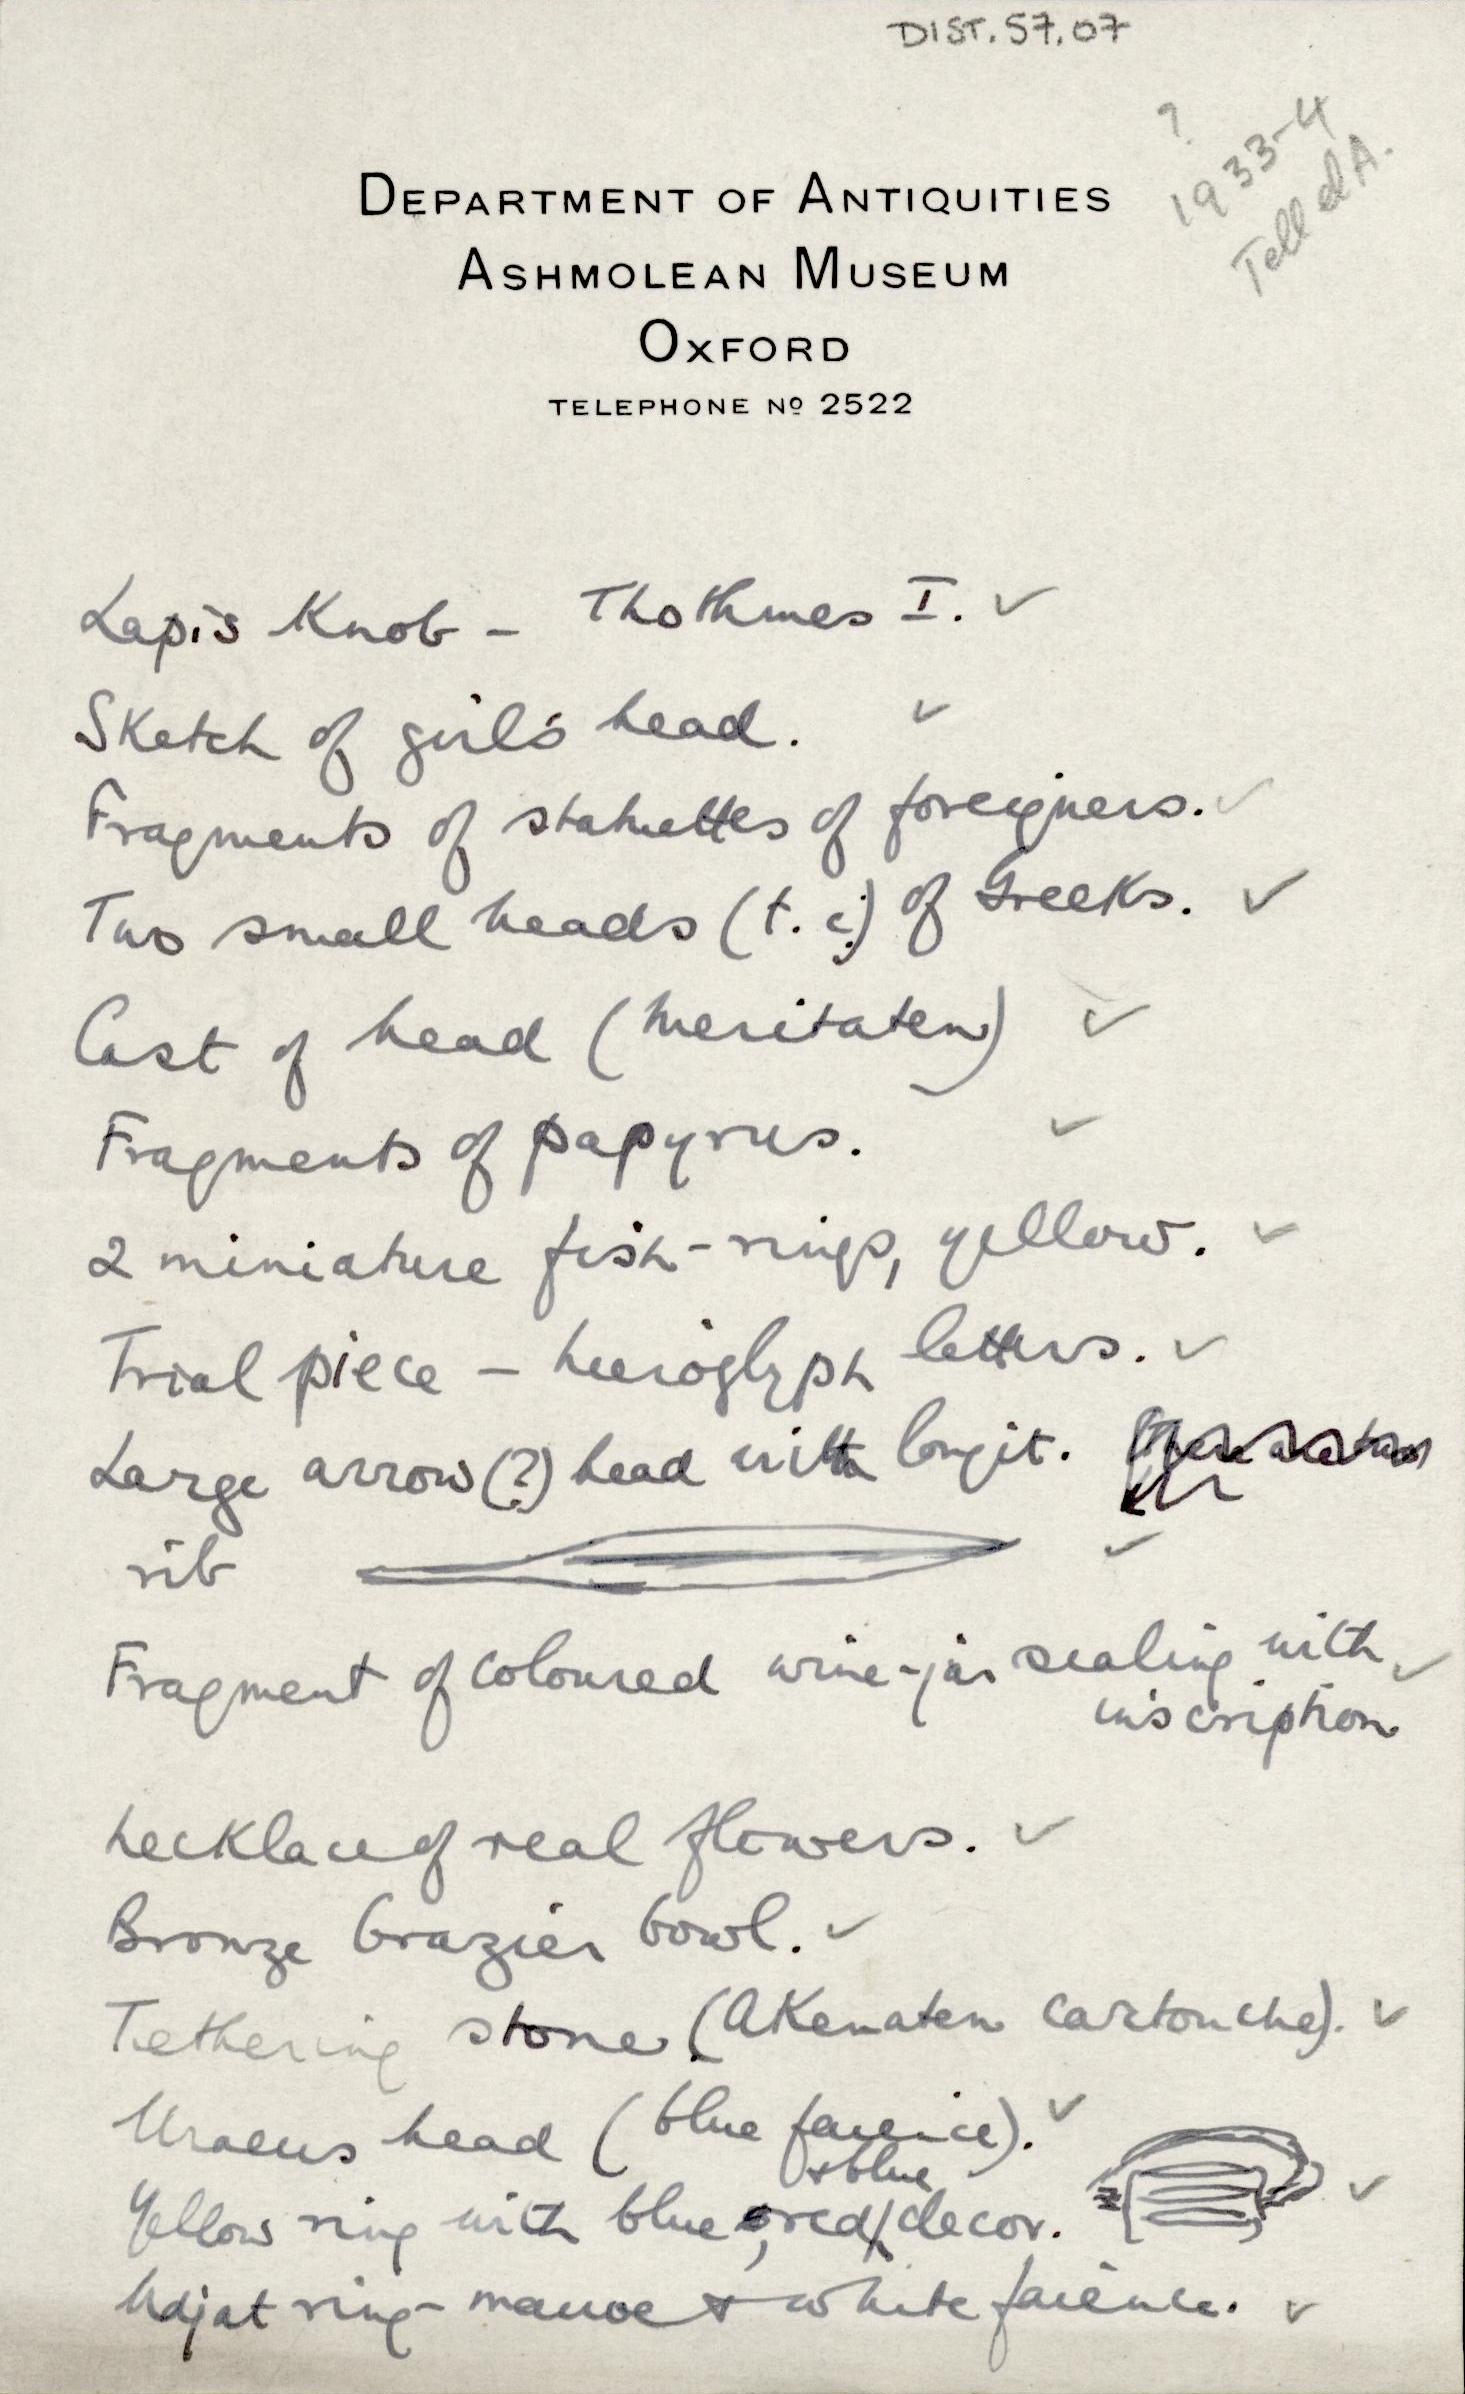 DIST. 57.07
?
1933-4
Tell el A.
DEPARTMENT OF ANTIQUITIES
ASHMOLEAN MUSEUM
OXFORD
TELEPHONE Nº 2522
Lapis Knob - Thothmes I. ✓
Sketch of girl's head. ✓
Fragments of statuettes of foreigners. ✓
Two small heads (t. c.) of Greeks. ✓
Cast of head (Meritaten) ✓
Fragments of papyrus. ✓
2 miniature fish-rings, yellow. ✓
Trial piece - hieroglyph letters. ✓
Large arrow(?) head with longit.
rib ✓
Fragment of coloured wine-jar sealing with ✓
inscription
Necklace of real flowers. ✓
Bronze brazier bowl. ✓
Tethering stone (Akenaten cartouche). ✓
Uraeus head (blue faience). ✓
+ blue
Yellow ring with blue, red/decor. ✓
Udjat ring - mauve + white faience. ✓